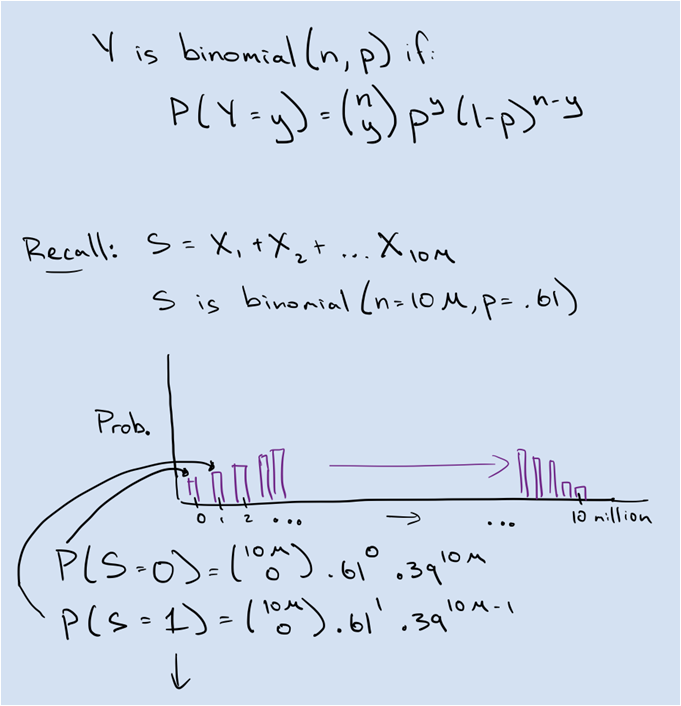 Y is binomial (n, p) if:
P(Y = y) = (n y) p^y (1-p)^n-y
Recall: S = X₁ + X₂ + ... X₁₀M
S is binomial (n=10M, p= .61)
Prob.
0 1 2 ... → ... 10 million
P(S=0) = (10M 0) .61^0 .39^10M
P(S=1) = (10M 0) .61^1 .39^10M-1
↓